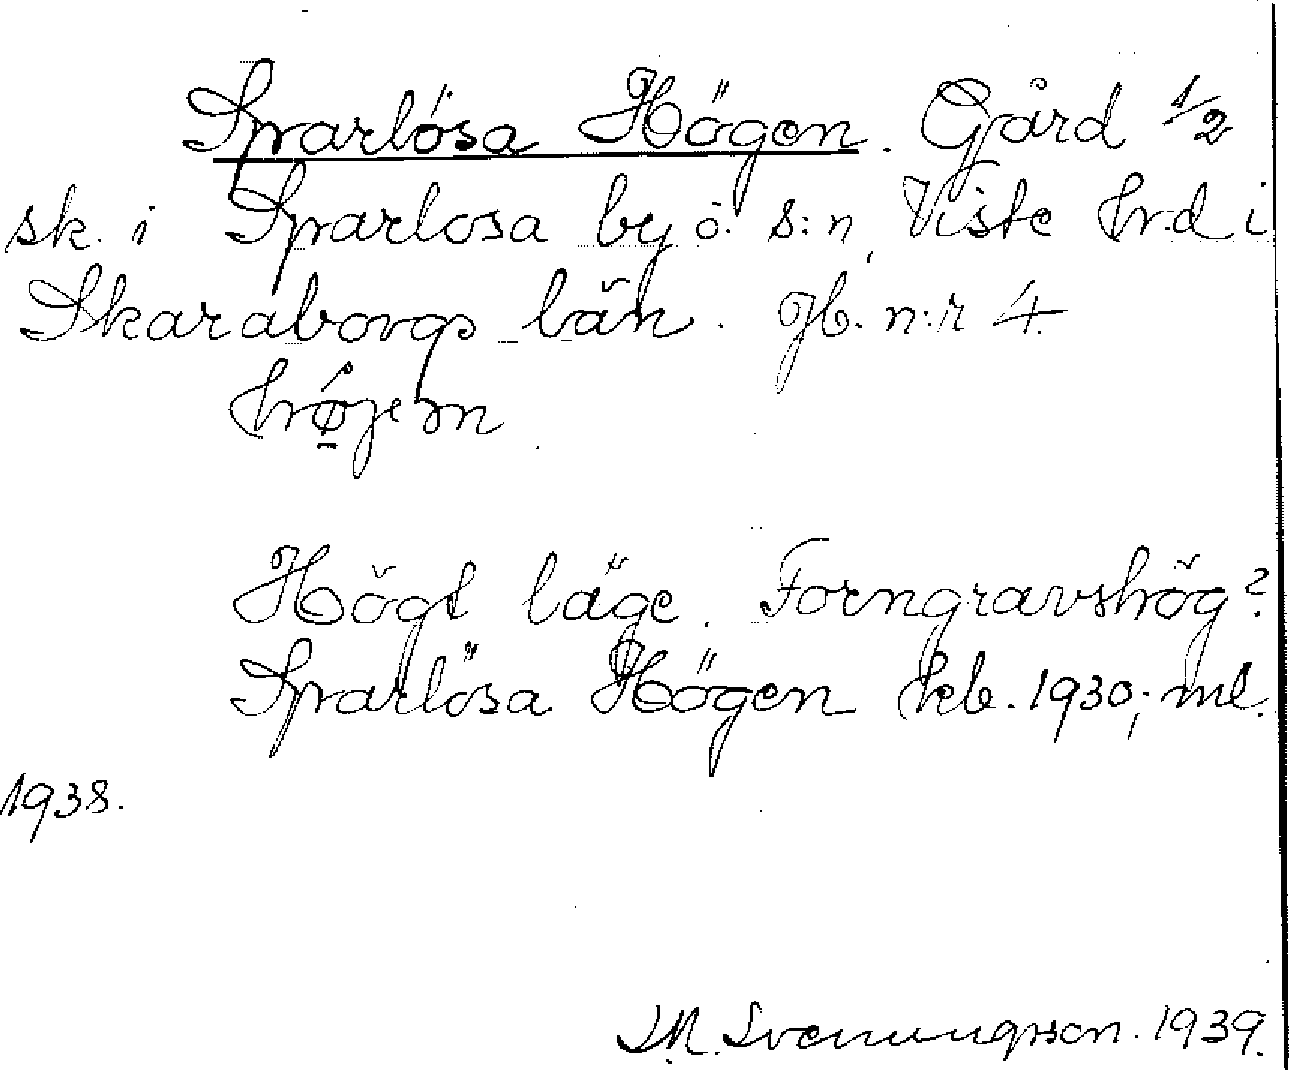 Sparlösa Högen. Gård 1/2
sk. i Sparlosa by o. s:n, Viste hrd i
Skaraborgs län. Jb. n:r 4.
hø̱jen
Högt läge. Forngravshög?
Sparlösa Högen kb. 1930; ml.
1938.
Svenungsson. 1939.